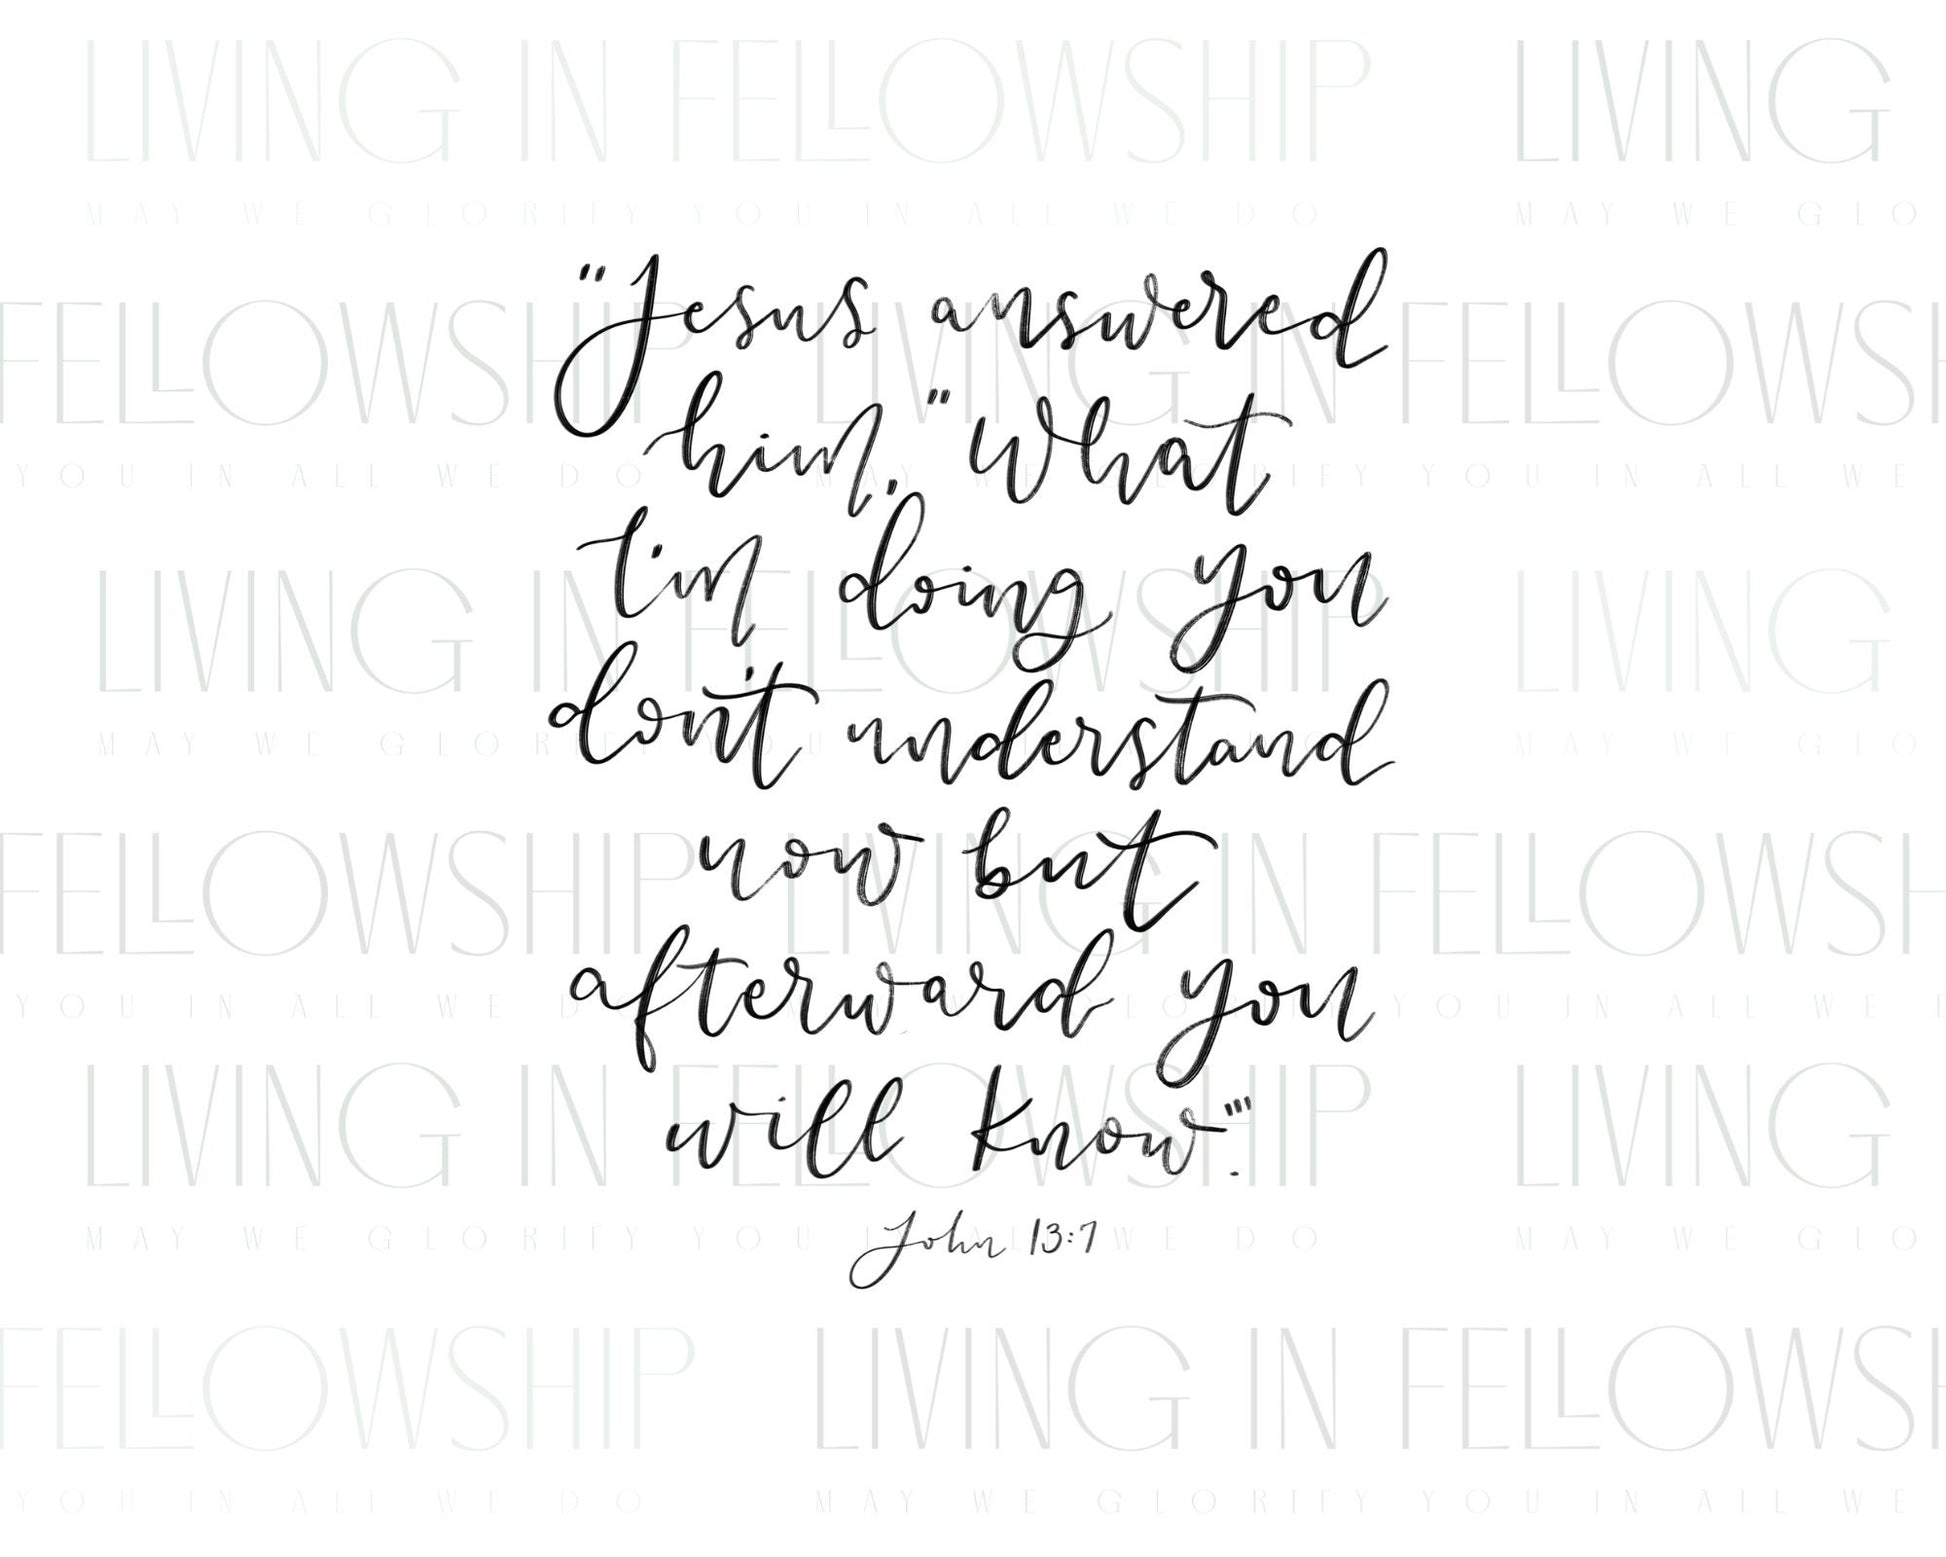 LIVING IN FELLOWSHIP LIVING
MAY WE GLORIFY YOU IN ALL WE DO MAY WE GLO
"Jesus answered
FELLOWSHIP LIVING IN FELLOWS
him, "What
YOU IN ALL WE DO MAY WE GLORIFY YOU IN ALL WE
I'm doing you
LIVING IN FELLOWSHIP LIVING
don't understand
MAY WE GLORIFY YOU MAY WE GLO
now but
FELLOWSHIP LIVING IN FELLOWSH
afterward you
YOU IN ALL WE DO GLORIFY YOU IN ALL WE
will know"'.
LIVING IN FELLOWSHIP LIVING
John 13:7
MAY WE GLORIFY YOU IN ALL WE DO MAY WE GLO
FELLOWSHIP LIVING IN FELLOWSHI
YOU IN ALL WE DO MAY WE GLORIFY YOU IN ALL WE